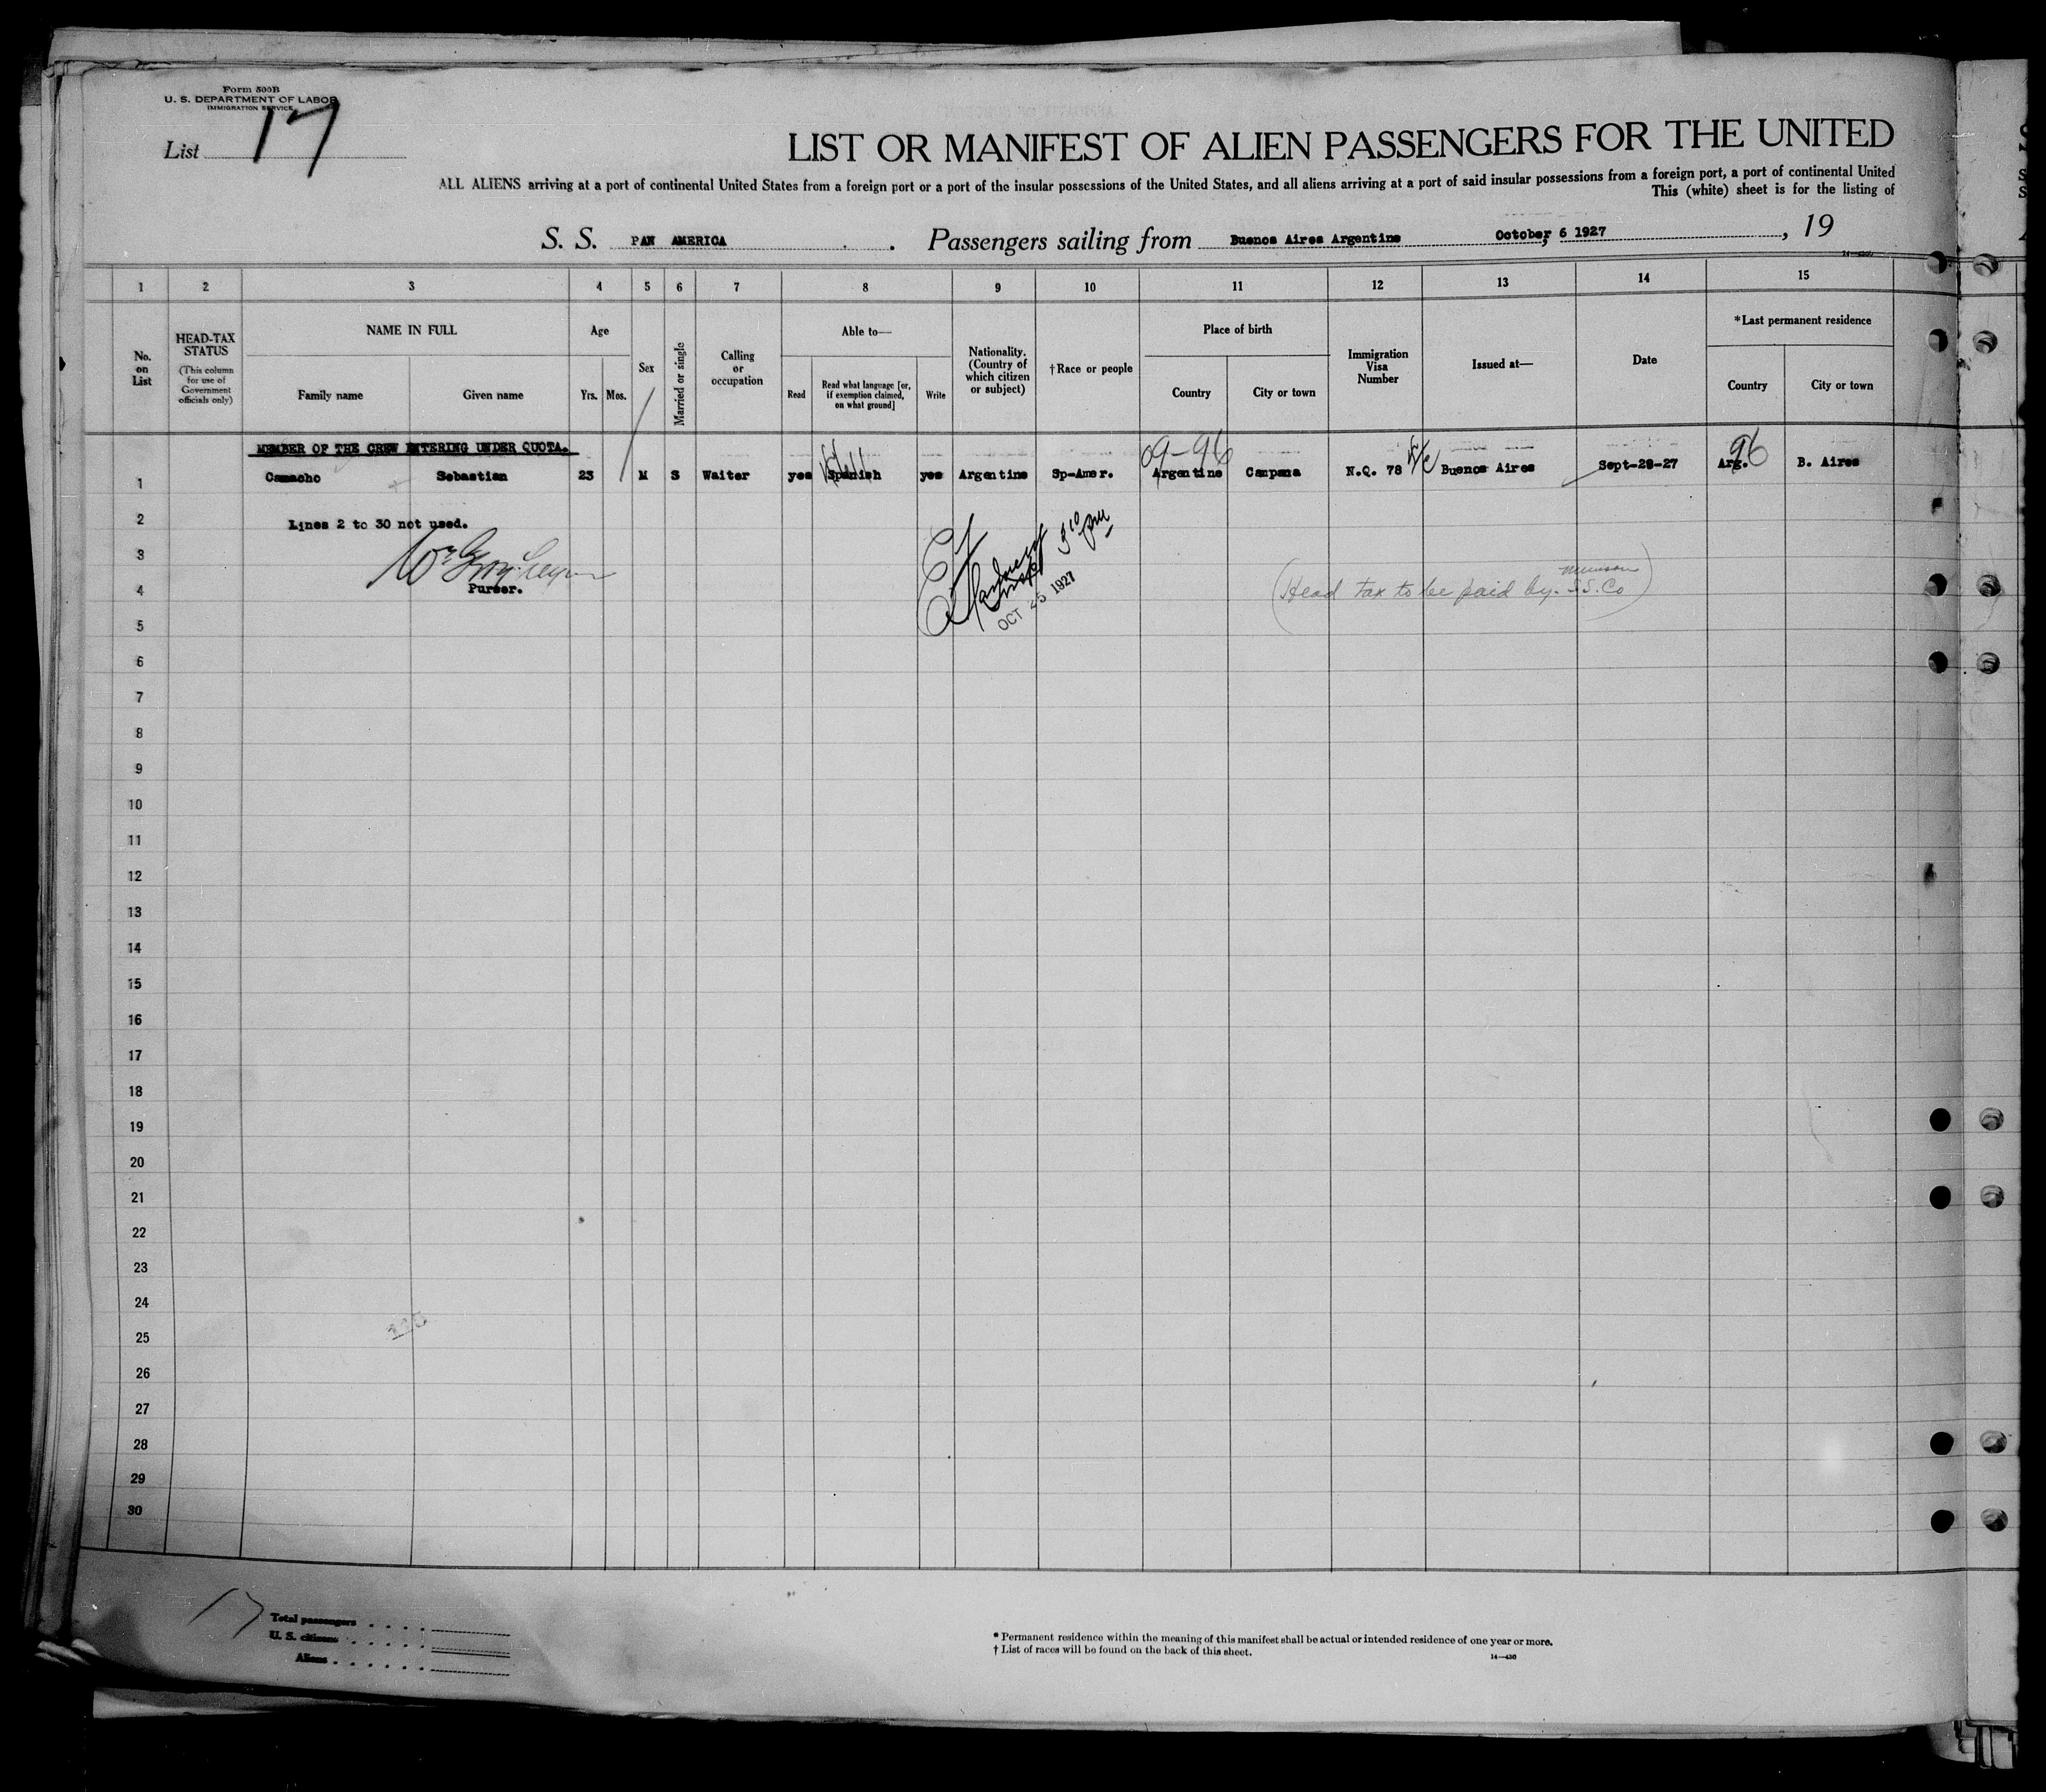 Form 500B
U. S. DEPARTMENT OF LABOR
IMMIGRATION SERVICE
List 17
LIST OR MANIFEST OF ALIEN PASSENGERS FOR THE UNITED
ALL ALIENS arriving at a port of continental United States from a foreign port or a port of the insular possessions of the United States, and all aliens arriving at a port of said insular possessions from a foreign port, a port of continental United
This (white) sheet is for the listing of
S. S. PAN AMERICA . Passengers sailing from Buenos Aires Argentine October 6 1927, 19
1 2 3 4 5 6 7 8 9 10 11 12 13 14 15
No. on List
HEAD-TAX STATUS
(This column for use of Government officials only)
NAME IN FULL
Family name Given name
Age
Yrs. Mos.
Sex
Married or single
Calling or occupation
Able to—
Read
Read what language [or, if exemption claimed, on what ground]
Write
Nationality. (Country of which citizen or subject)
†Race or people
Place of birth
Country City or town
Immigration Visa Number
Issued at—
Date
*Last permanent residence
Country City or town
MEMBER OF THE CREW ENTERING UNDER QUOTA.
09-96 96
1 Camacho Sebastian 23 M S Waiter yes Spanish yes Argentine Sp-Amer. Argentine Campana N.Q. 78 Buenos Aires Sept-28-27 Arg. B. Aires
2 Lines 2 to 30 not used.
3
310 pm
(Head Tax to be paid by Munson S.S. Co)
4 Purser.
OCT 25 1927
5
6
7
8
9
10
11
12
13
14
15
16
17
18
19
20
21
22
23
24
25
26
27
28
29
30
17
Total passengers
U. S. citizens
Aliens
* Permanent residence within the meaning of this manifest shall be actual or intended residence of one year or more.
† List of races will be found on the back of this sheet.
14—430